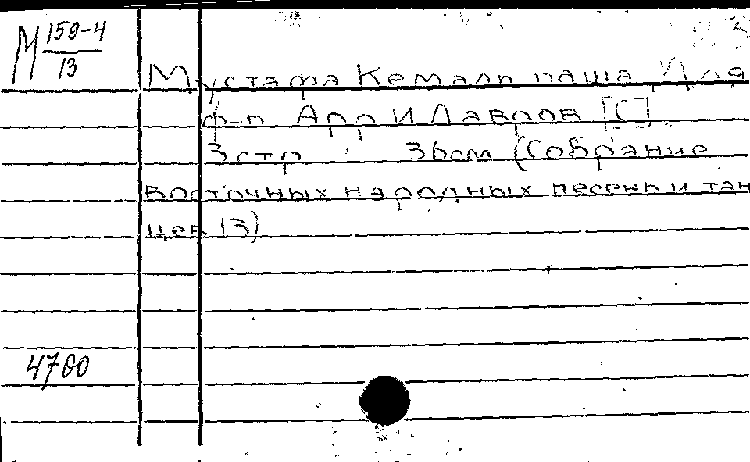 М 159-4
13
Мустафа Кемаль паша Для
ф-п. Арр И Лавров [С]
3 стр. 36см (Собрание
восточных народных песень и тан
цев 13)
4780